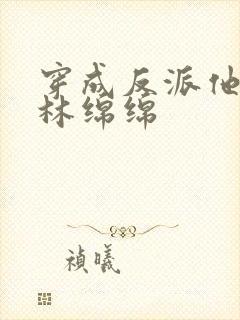 穿成反派他
林绵绵
祯曦